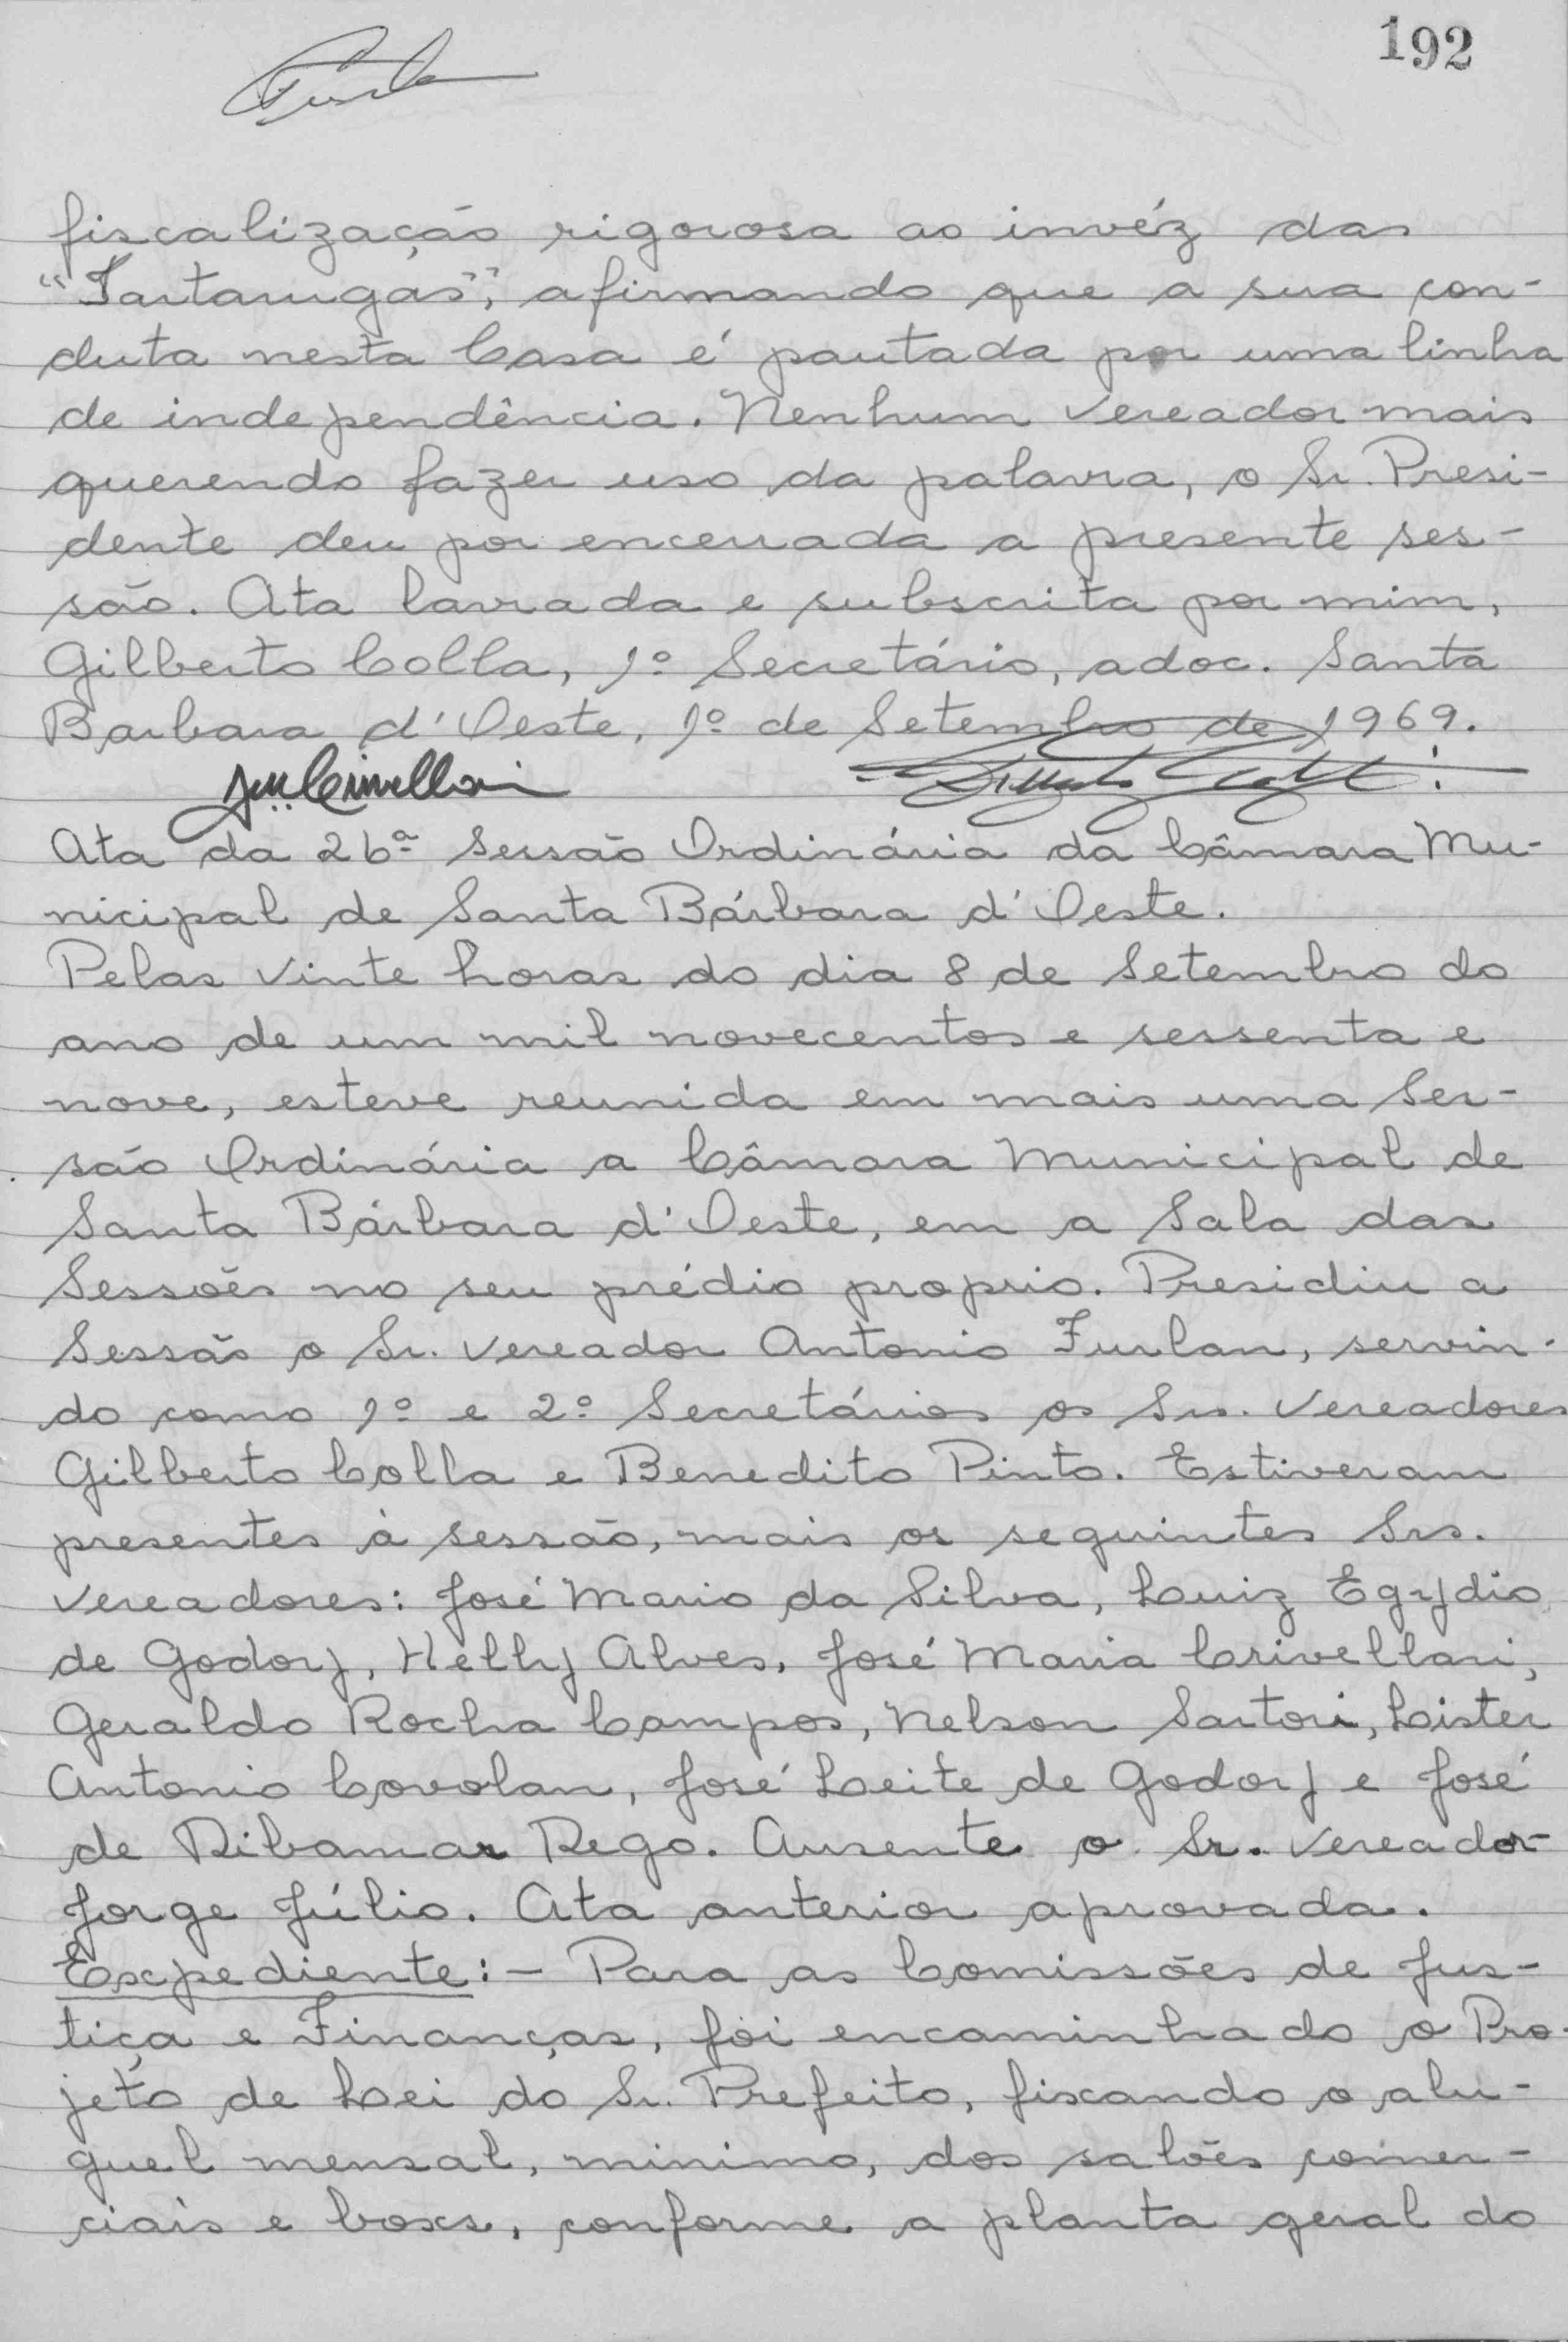 192
fiscalização rigorosa ao invéz das
"Tartarugas", afirmando que a sua con-
duta nesta Casa é pautada por uma linha
de independência. Nenhum vereador mais
querendo fazer uso da palavra, o Sr. Presi-
dente deu por encerrada a presente ses-
são. Ata lavrada e subscrita por mim,
Gilberto Colla, 1º Secretário, adoc. Santa
Barbara d'Oeste, 1º de Setembro de 1969.
Ata da 26ª Sessão Ordinária da Câmara Mu-
nicipal de Santa Bárbara d'Oeste.
Pelas vinte horas do dia 8 de Setembro do
ano de um mil novecentos e sessenta e
nove, esteve reunida em mais uma Ses-
são Ordinária a Câmara Municipal de
Santa Bárbara d'Oeste, em a Sala das
Sessões no seu prédio proprio. Presidiu a
Sessão o Sr. vereador Antonio Furlan, servin-
do como 1º e 2º Secretários os Srs. Vereadores
Gilberto Colla e Benedito Pinto. Estiveram
presentes à sessão, mais os seguintes Srs.
vereadores: José Mario da Silva, Luiz Egydio
de Godoy, Helly Alves, José Maria Crivellari,
Geraldo Rocha Campos, Nelson Sartori, Lister
Antonio Covolan, José Leite de Godoy e José
de Ribamar Rego. Ausente o Sr. Vereador
Jorge Júlio. Ata anterior aprovada.
Expediente:- Para as Comissões de Jus-
tiça e Finanças, foi encaminhado o Pro-
jeto de Lei do Sr. Prefeito, fixando o alu-
guel mensal, minimo, dos salões comer-
ciais e boxs, conforme a planta geral do